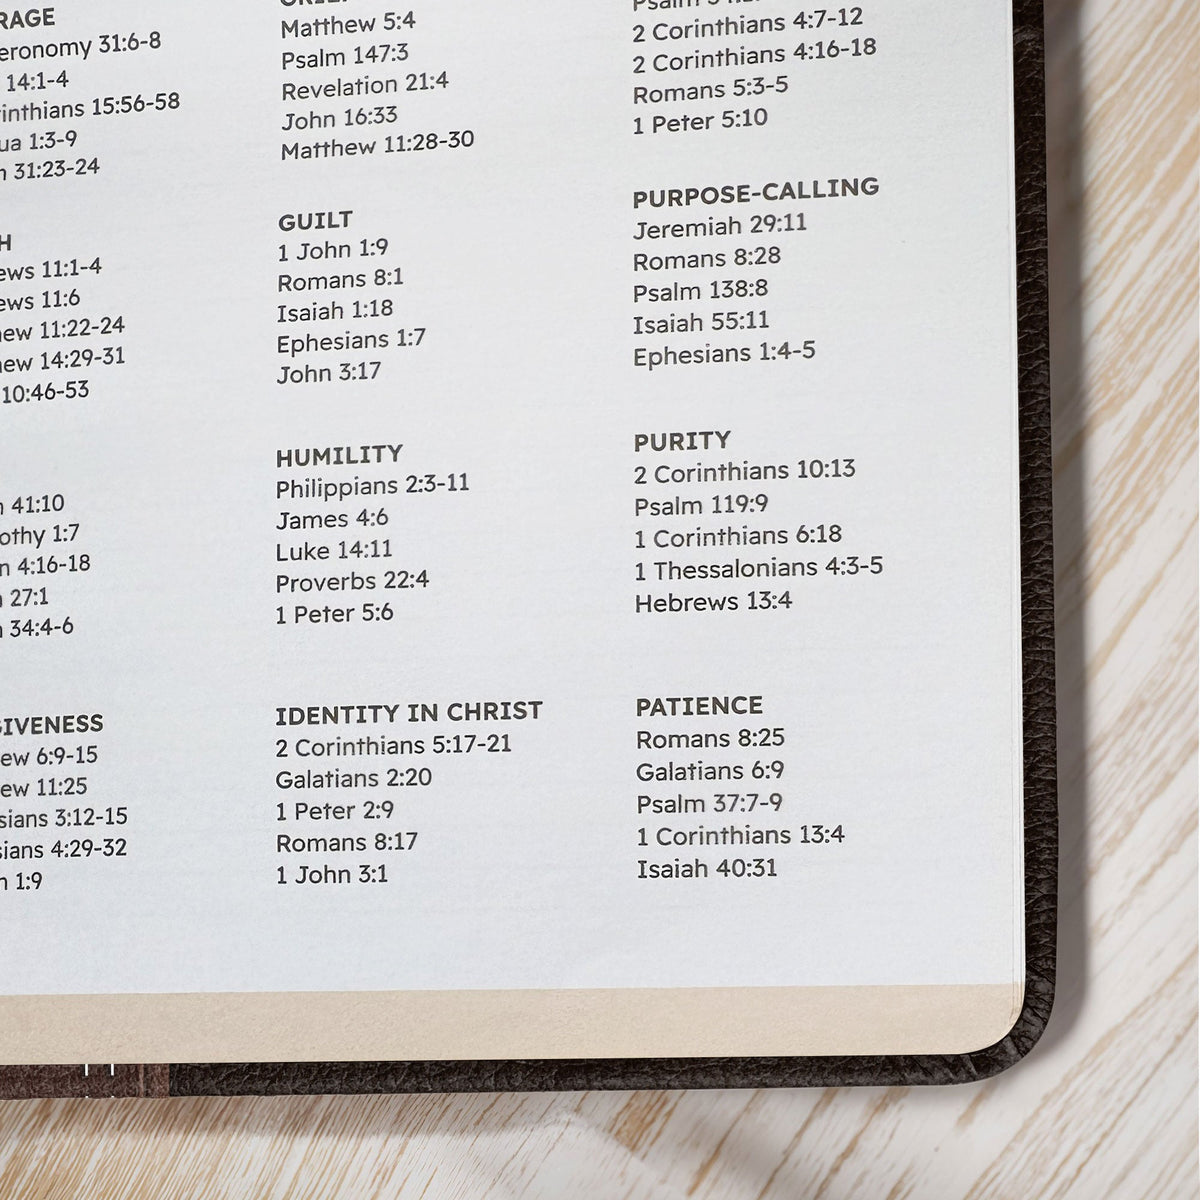 RAGE
eronomy 31:6-8
14:1-4
inthians 15:56-58
ua 1:3-9
31:23-24
H
ews 11:1-4
ews 11:6
ew 11:22-24
ew 14:29-31
10:46-53
41:10
othy 1:7
n 4:16-18
27:1
34:4-6
GIVENESS
ew 6:9-15
ew 11:25
sians 3:12-15
sians 4:29-32
1:9
Matthew 5:4
Psalm 147:3
Revelation 21:4
John 16:33
Matthew 11:28-30
GUILT
1 John 1:9
Romans 8:1
Isaiah 1:18
Ephesians 1:7
John 3:17
HUMILITY
Philippians 2:3-11
James 4:6
Luke 14:11
Proverbs 22:4
1 Peter 5:6
IDENTITY IN CHRIST
2 Corinthians 5:17-21
Galatians 2:20
1 Peter 2:9
Romans 8:17
1 John 3:1
2 Corinthians 4:7-12
2 Corinthians 4:16-18
Romans 5:3-5
1 Peter 5:10
PURPOSE-CALLING
Jeremiah 29:11
Romans 8:28
Psalm 138:8
Isaiah 55:11
Ephesians 1:4-5
PURITY
2 Corinthians 10:13
Psalm 119:9
1 Corinthians 6:18
1 Thessalonians 4:3-5
Hebrews 13:4
PATIENCE
Romans 8:25
Galatians 6:9
Psalm 37:7-9
1 Corinthians 13:4
Isaiah 40:31